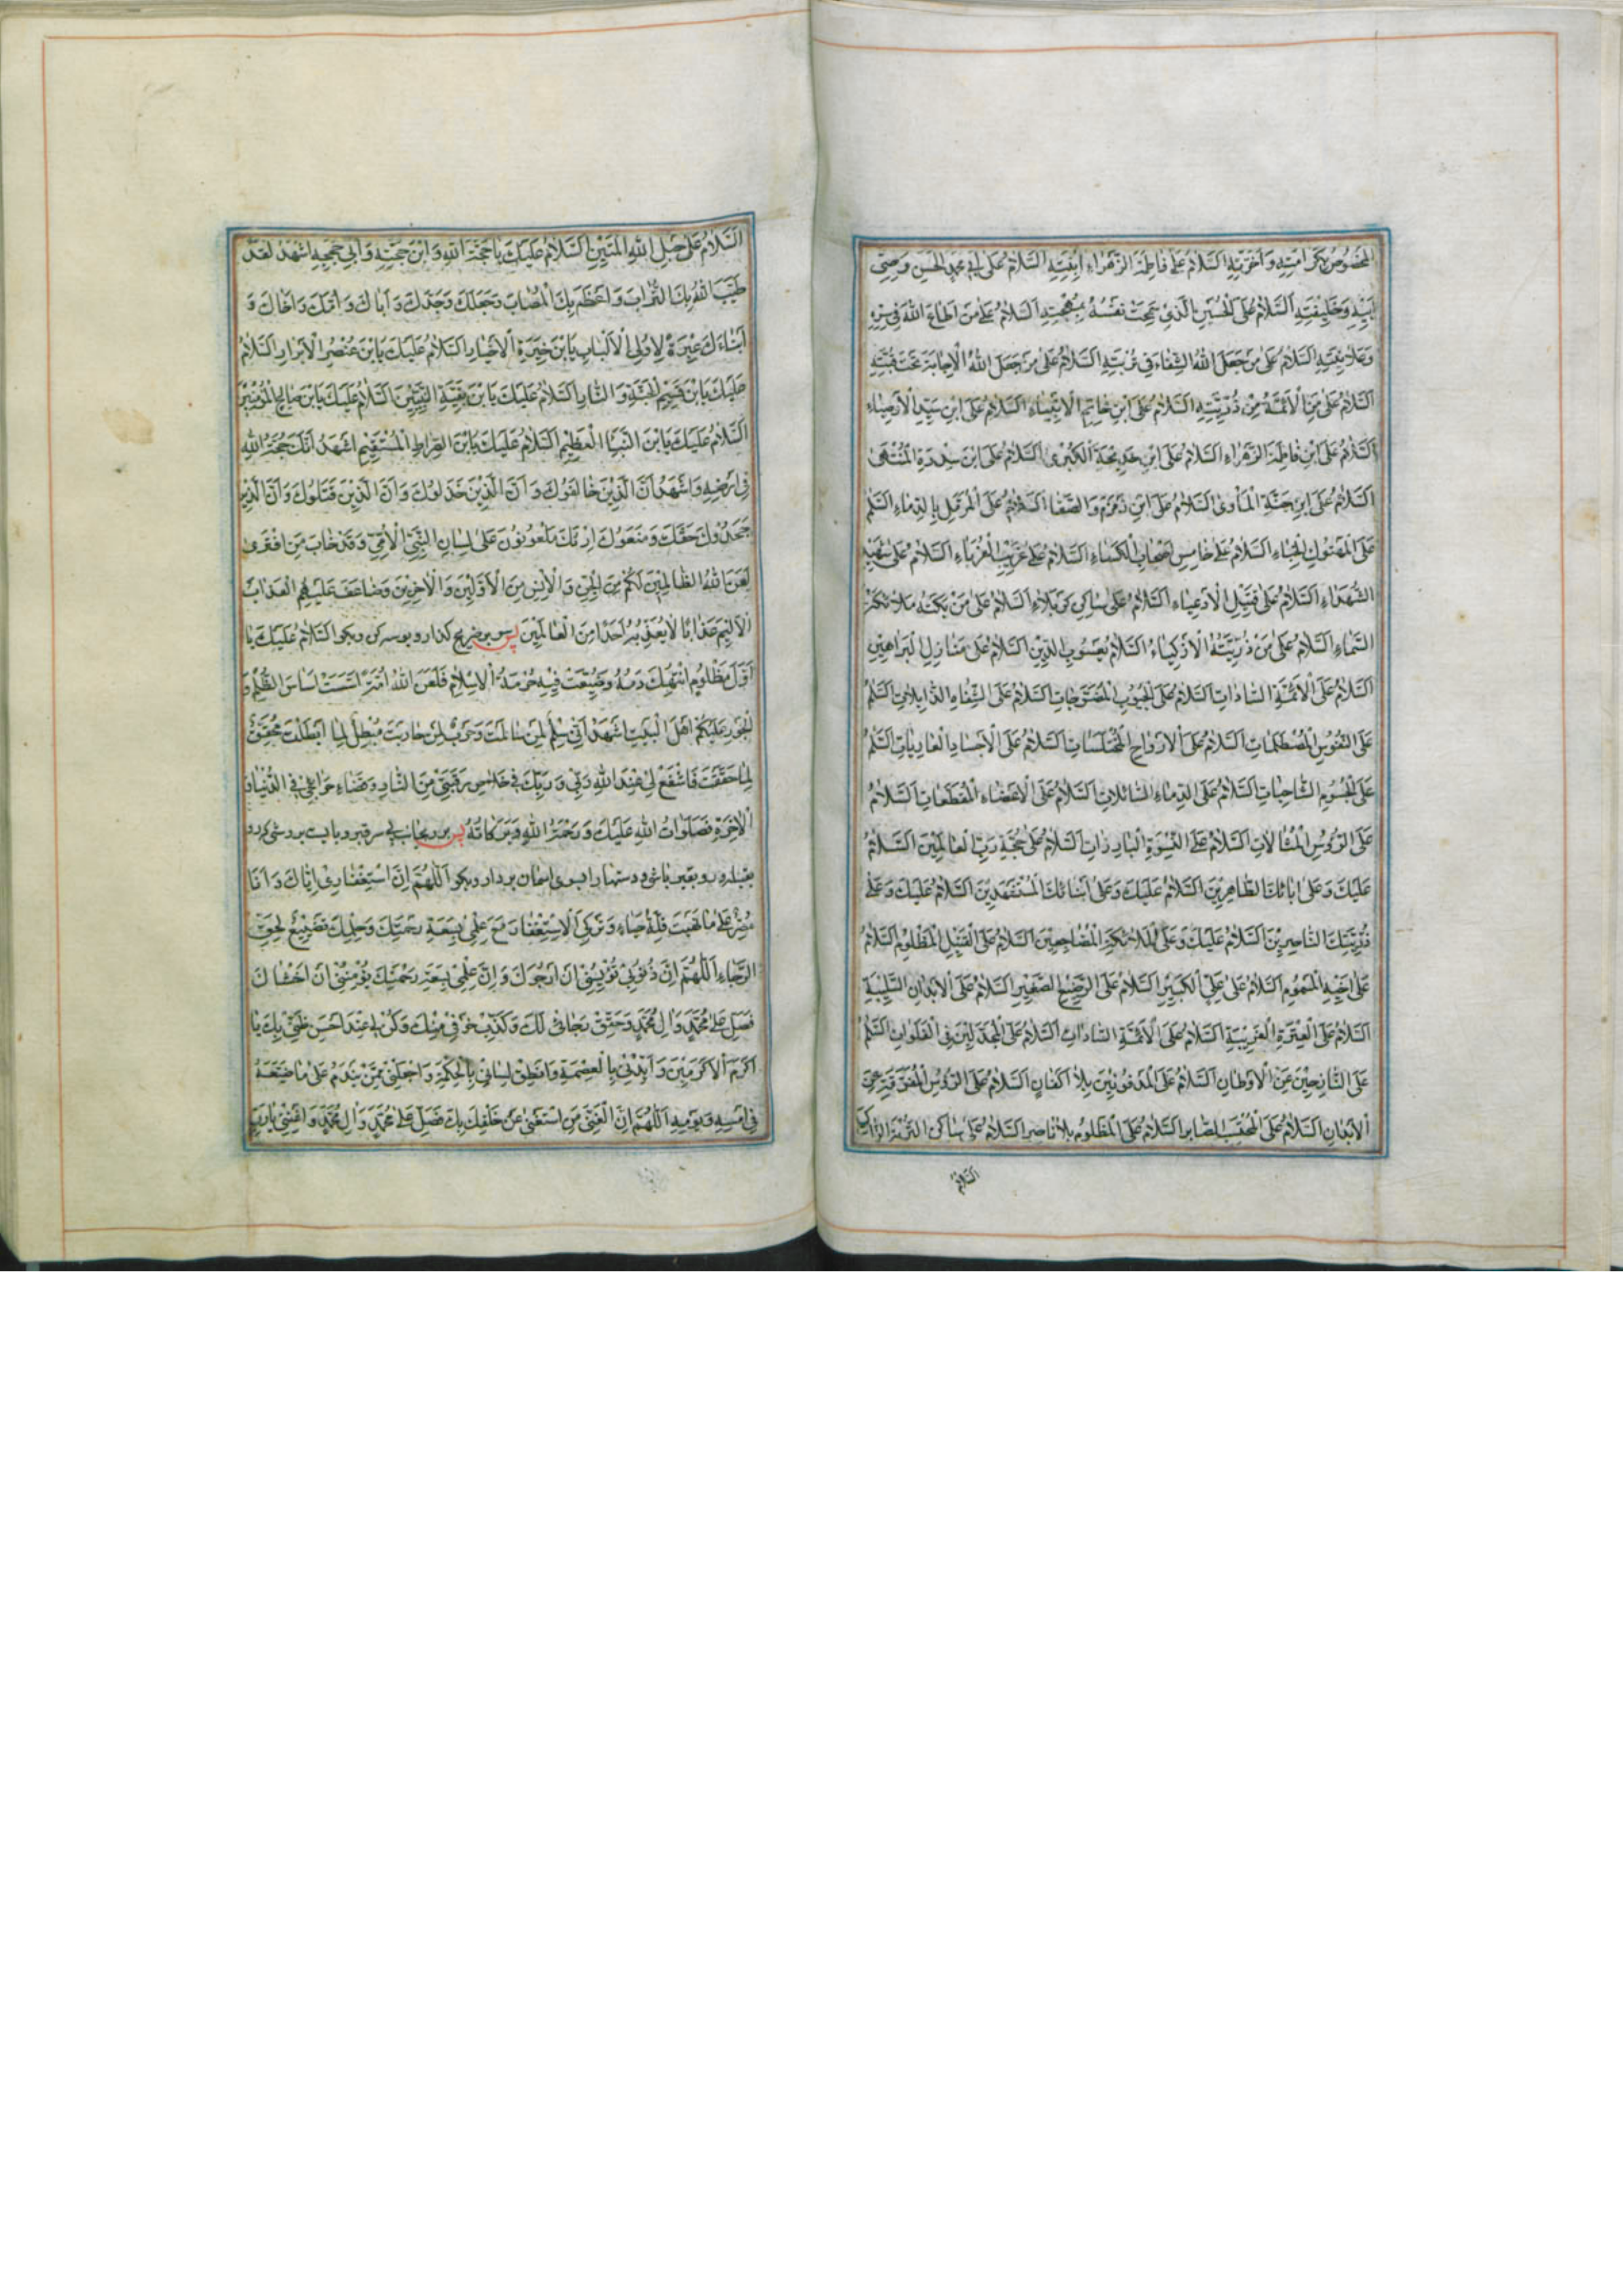 المخصوص بكرامته و اخوته السلام على فاطمة الزهراء ابنته السلام على ابى محمد الحسن وصى
ابيه و خليفته السلام على الحسين الذى سمحت نفسه بمهجته السلام على من اطاع الله فى سره
و علانيته السلام على من جعل الله الشفاء فى تربته السلام على من جعل الله الاجابة تحت قبته
السلام على من الائمة من ذريته السلام على ابن خاتم الانبياء السلام على ابن سيد الاوصياء
السلام على ابن فاطمة الزهراء السلام على ابن خديجة الكبرى السلام على ابن سدرة المنتهى
السلام على ابن جنة المأوى السلام على ابن زمزم و الصفا السلام على المرمل بالدماء السلم
على المهتوك الخباء السلام على خامس اصحاب الكساء السلام على غريب الغرباء السلام على شهيد
الشهداء السلام على قتيل الادعياء السلام على ساكن كربلاء السلام على من بكته ملائكة
السماء السلام على من ذريته الازكياء السلام يعسوب الدين السلام على منازل البراهين
السلام على الائمة السادات السلام على الجيوب المضرجات السلام على الشفاه الذابلات السلم
على النفوس المصطلمات السلام على الارواح المختلسات السلام على الاجساد العاريات السلم
على الجسوم الشاحبات السلام على الدماء السائلات السلام على الاعضاء المقطعات السلام
على الرؤس المشالات السلام على النسوة البارزات السلام على حجة رب العالمين السلام
عليك و على ابائك الطاهرين السلام عليك و على ابنائك المستشهدين السلام عليك و على
ذريتك الناصرين السلام عليك و على الملائكة المضاجعين السلام على القتيل المظلوم السلام
على اخيه المسموم السلام على على الكبير السلام على الرضيع الصغير السلام على الابدان السليبة
السلام على العترة الغريبة السلام على الائمة السادات السلام على المجدلين فى الفلوات السلم
على النازحين عن الاوطان السلام على المدفونين بلا اكفان السلام على الرؤس المفرقة عن
الابدان السلام على المحتسب الصابر السلام على المظلوم بلا ناصر السلام على ساكن التربة الزاكية
السلام
السلام على حبل الله المتين السلام عليك يا حجة الله و ابن حجته و ابى حججه اشهد لقد
طيب الله بك التراب و اعظم بك المصاب و جعلك و جدك و اباك و امك و اخاك و
ابناءك عبرة لاولى الالباب يابن خيرة الاخيار السلام عليك يابن عنصر الابرار السلام
عليك يابن قسيم الجنة و النار السلام عليك يابن بقية النبيين السلام عليك يابن صالح المؤمنين
السلام عليك يابن النبأ العظيم السلام عليك يابن الصراط المستقيم اشهد انك حجة الله
فى ارضه و اشهد ان الذين خالفوك و ان الذين خذلوك و ان الذين قتلوك و ان الذين
جحدوك حقك و منعوك ارثك ملعونون على لسان النبى الامى و قد خاب من افترى
لعن الله الظالمين لكم من الجن و الانس من الاولين و الاخرين و ضاعف عليهم العذاب
الاليم عذابا لا يعذب به احدا من العالمين پس بر ضريح گذار و بوسه كن و بگو السلام عليك يا
اول مظلوم انتهك دمه و ضيعت فيه حرمة الاسلام فلعن الله امة اسست اساس الظلم و
الجور عليكم اهل البيت اشهد انى سلم لمن سالمت و حرب لمن حاربت مبطل لما ابطلت محقق
لما حققت فاشفع لى عند الله ربى و ربك فى خلاص رقبتى من النار و قضاء حوائجى فى الدنيا و
الاخرة فصلوات الله عليك و رحمة الله و بركاته پس برو بجانب سر قبر و بايست بروشى كه رو
بقبله رو بقبر باشى و دستها را بسوى اسمان بردار و بگو اللهم ان استغفارى اياك و انا
مصر على ما نهيت قلة حياء و تركى الاستغفار مع علمى بسعة رحمتك و حلمك تضييع لحق
الرجاء اللهم ان ذنوبى تؤيسنى ان ارجوك و ان علمى بسعة رحمتك يؤمننى ان اخشاك
فصل على محمد و ال محمد و حقق رجائى لك و كذب خوفى منك و كن لى عند احسن ظنى بك يا
اكرم الاكرمين و ايدنى بالعصمة و انطق لسانى بالحكمة و اجعلنى ممن يندم على ما ضيعه
فى امسه و يومه اللهم ان الغنى من استغنى عن خلقك بك فصل على محمد و ال محمد و اغننى يا رب